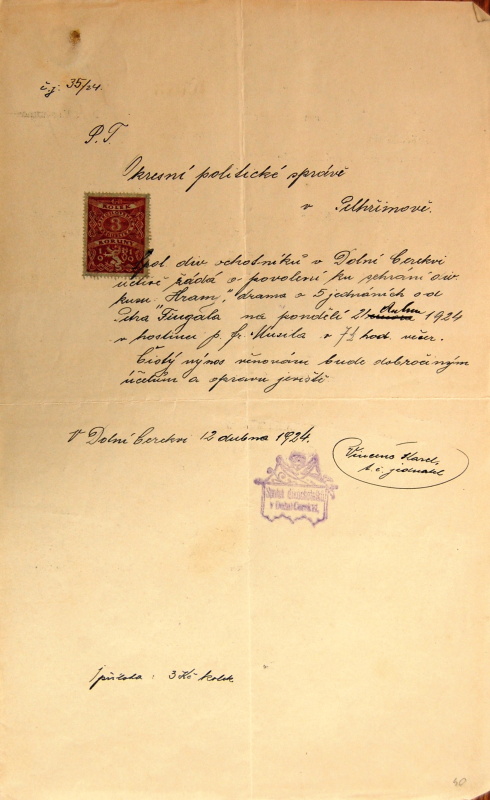 č.j. 35/24.
P. T.
Okresní politické správě
v Pelhřimově.
KOLEK
3
KORUNY
Spol. div. ochotníků v Dolní Cerekvi
uctivě žádá o povolení ku sehrání div.
kusu "Hram," drama o 5 jednáních od
Petra Fingala na pondělí 21 dubna 1924
v hostinci p. Fr. Musila v 7½ hod. večer.
Čistý výnos věnován bude dobročinným
účelům a opravu jeviště
V Dolní Cerekvi 12 dubna 1924.
Vincenc Karel,
t. č. jednatel
Spolek divad. ochotníků
v Dolní Cerekvi.
1 příloha : 3 Kč kolek
40